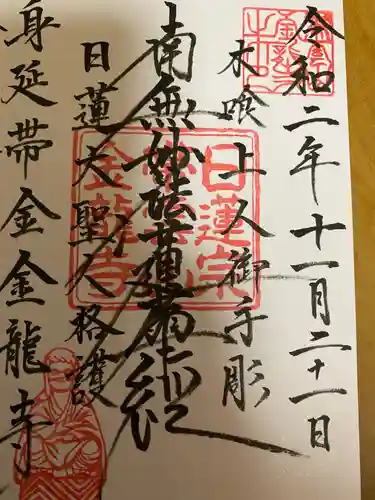 令和二年十一月二十一日
木喰上人御手彫
南無妙法蓮華経
日蓮大聖人格護
身延帯金金龍寺
日蓮宗
金龍寺